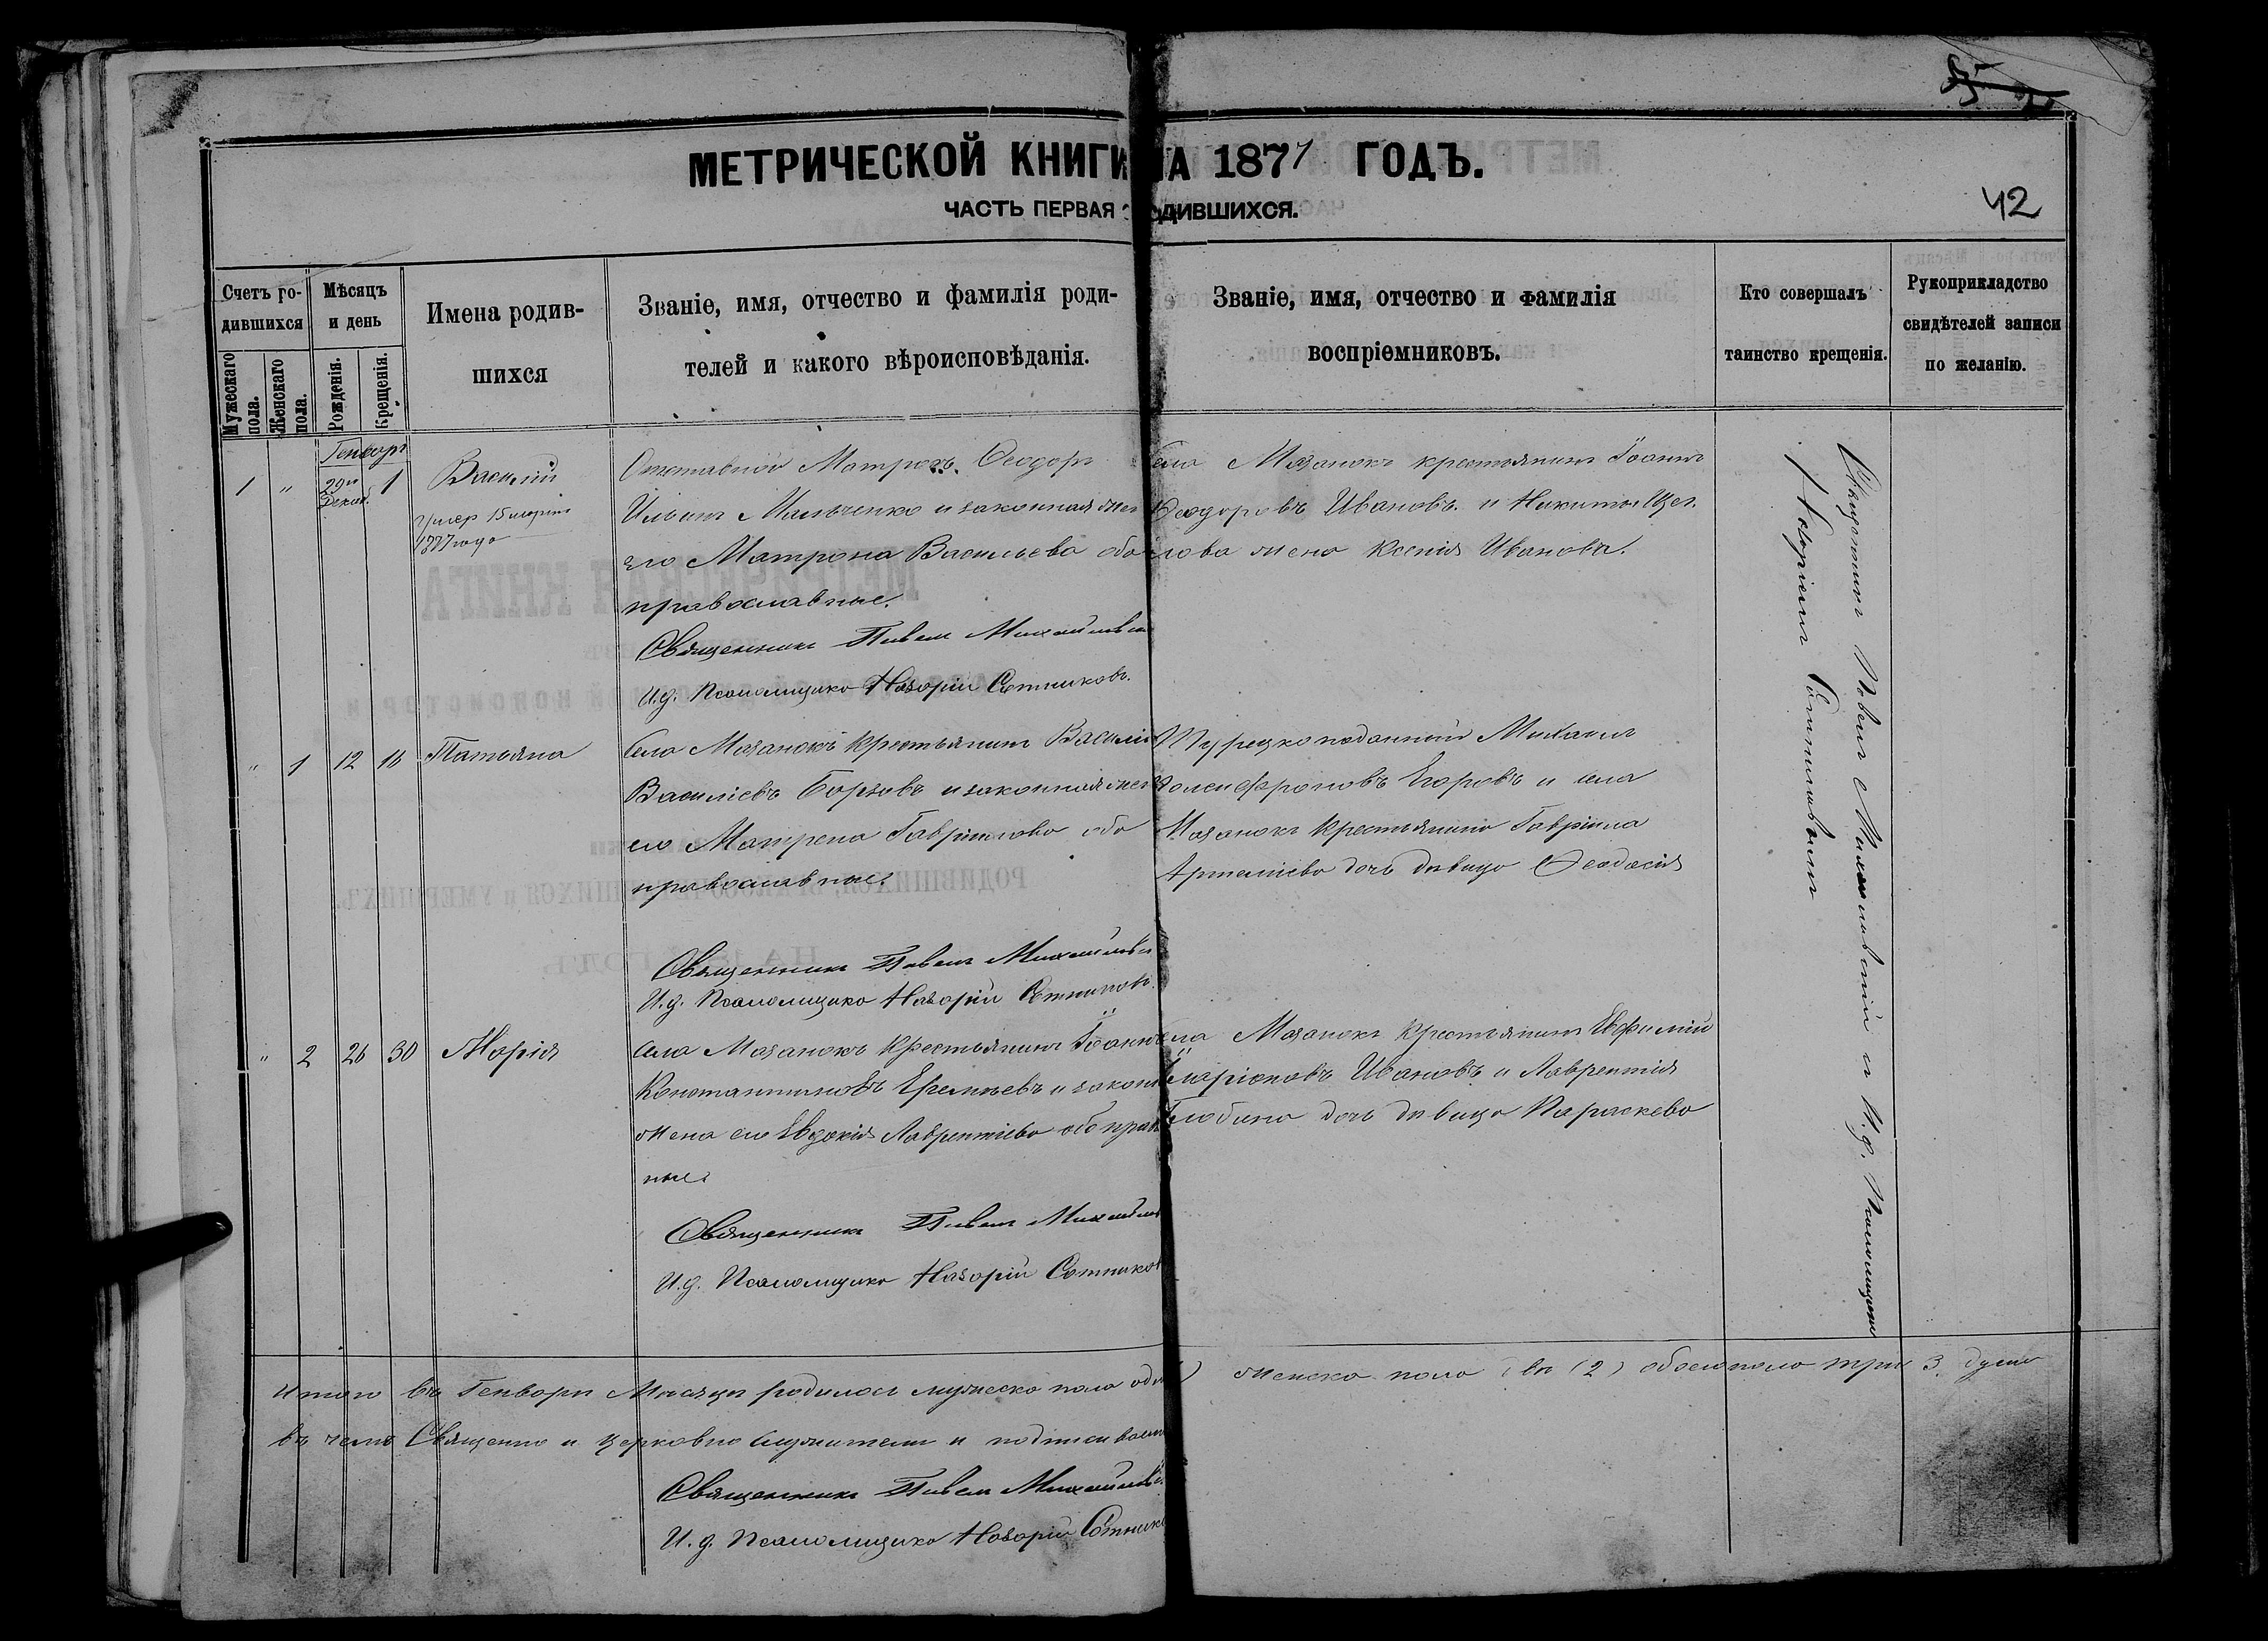 42
МЕТРИЧЕСКОЙ КНИГИ НА 1877 ГОДЪ.
ЧАСТЬ ПЕРВАЯ О РОДИВШИХСЯ.
Счетъ родившихся
Мужескаго пола.
Женскаго пола.
Мѣсяцъ и день
Рожденія.
Крещенія.
Имена родившихся
Званіе, имя, отчество и фамилія родителей и какого вѣроисповѣданія.
Званіе, имя, отчество и фамилія
воспріемниковъ.
Кто совершалъ
таинство крещенія.
Рукоприкладство
свидѣтелей записи
по желанію.
Генварь
1 " 29го Декаб. 1 Василій
Умер 15 марта
1877 года
Отставной Матросъ Ѳеодоръ
Ильинъ Мальченко и законная жен
его Матрона Васильева оба
православные.
Священникъ Павелъ
И.д. Псаломщика Назарій Сотниковъ.
Села Мазанокъ крестьянинъ Іоаннъ
Ѳеодоровъ Ивановъ. и Никиты
жена Ксенія Иванова.
" 1 12 16 Татьяна
Села Мазанокъ крестьянинъ Василій
Василіевъ Борзовъ и законная жен
его Матрена Гавріилова оба
православные.
Священникъ Павелъ
И.д. Псаломщика Назарій Сотниковъ.
Турецкоподанный Михаилъ
Егоровъ и села
Мазанокъ крестьянина Гавріила
Артеміева дочь дѣвица Ѳеодосія
" 2 26 30 Марія
Села Мазанокъ крестьянинъ Іоаннъ
Константиновъ Еремѣевъ и закон
жена его Евдокія Лаврентіева оба прав
ные.
Священникъ Павелъ
И.д. Псаломщика Назарій Сотников
села Мазанокъ крестьянинъ Евфимій
Иларіоновъ Ивановъ и Лаврентія
дочь дѣвица Параскева
Священникъ Павелъ и И.д. Псаломщика
Назарій
Итого въ Генварѣ Мѣсяцѣ родилось мужеска пола од ) женска пола двѣ (2) обоего пола три 3 души
въ чемъ Священно и церковно служители и подписываем
Священникъ Павелъ
И.д. Псаломщика Назарій Сотник